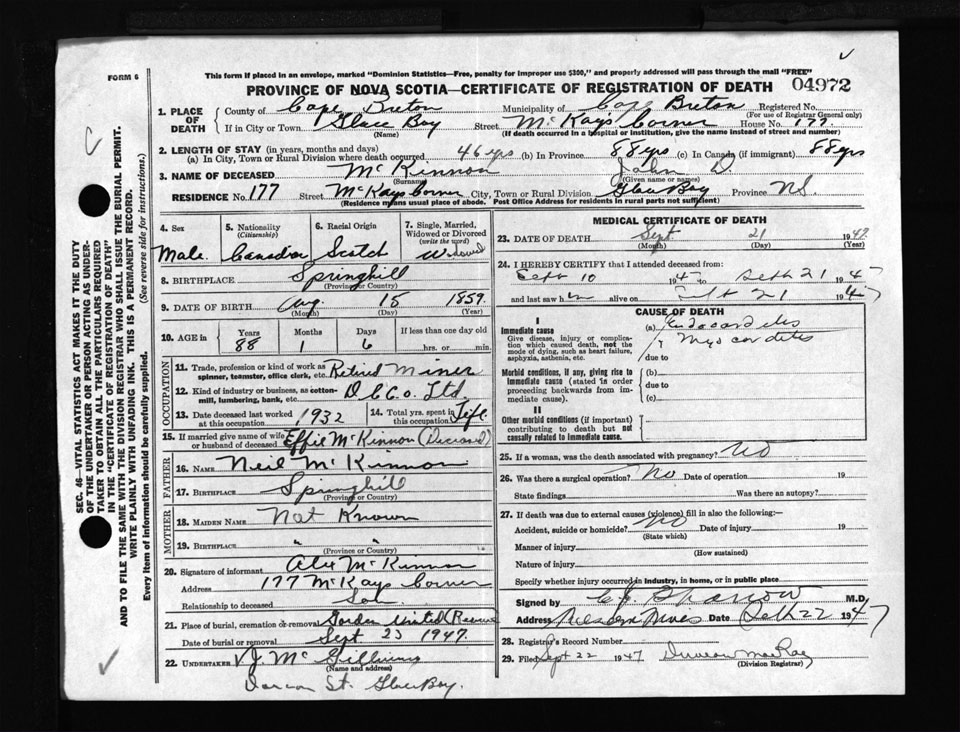 FORM 6
This form if placed in an envelope, marked "Dominion Statistics—Free, penalty for improper use $300," and properly addressed will pass through the mail "FREE"
PROVINCE OF NOVA SCOTIA—CERTIFICATE OF REGISTRATION OF DEATH 04972
1. PLACE OF DEATH County of Cape Breton Municipality of Cape Breton Registered No.
(For use of Registrar General only)
If in City or Town Glace Bay Street McKays Corner House No. 177
(Name) (If death occurred in a hospital or institution, give the name instead of street and number)
2. LENGTH OF STAY (in years, months and days)
(a) In City, Town or Rural Division where death occurred 46 yrs (b) In Province 88 yrs (c) In Canada (if immigrant) 88 yrs
3. NAME OF DECEASED McKinnon John D.
(Surname) (Given name or names)
RESIDENCE No. 177 Street McKays Corner City, Town or Rural Division Glace Bay Province N.S.
(Residence means usual place of abode. Post Office Address for residents in rural parts not sufficient)
SEC. 46—VITAL STATISTICS ACT MAKES IT THE DUTY
OF THE UNDERTAKER OR PERSON ACTING AS UNDER-
TAKER TO OBTAIN ALL THE PARTICULARS REQUIRED
IN THE "CERTIFICATE OF REGISTRATION OF DEATH"
AND TO FILE THE SAME WITH THE DIVISION REGISTRAR WHO SHALL ISSUE THE BURIAL PERMIT.
WRITE PLAINLY WITH UNFADING INK. THIS IS A PERMANENT RECORD.
Every item of information should be carefully supplied. (See reverse side for instructions.)
4. Sex 5. Nationality (Citizenship) 6. Racial Origin 7. Single, Married, Widowed or Divorced (write the word)
Male Canadian Scotch Widowed
8. BIRTHPLACE Springhill
(Province or Country)
9. DATE OF BIRTH Aug. 15 1859
(Month) (Day) (Year)
10. AGE in Years Months Days If less than one day old
88 1 6 hrs. or min.
OCCUPATION
11. Trade, profession or kind of work as spinner, teamster, office clerk, etc. Retired Miner
12. Kind of industry or business, as cotton-mill, lumbering, bank, etc. D C Co. Ltd.
13. Date deceased last worked at this occupation 1932 14. Total yrs. spent in this occupation Life
15. If married give name of wife or husband of deceased Effie McKinnon (Deceased)
FATHER
16. NAME Neil McKinnon
17. BIRTHPLACE Springhill
(Province or Country)
MOTHER
18. MAIDEN NAME Not Known
19. BIRTHPLACE " "
(Province or Country)
20. Signature of informant Alex McKinnon
Address 177 McKays Corner
Relationship to deceased Son
21. Place of burial, cremation or removal United
Date of burial or removal Sept. 23 1947.
22. UNDERTAKER V.J. McGillivray
(Name and address)
St. Glace Bay.
MEDICAL CERTIFICATE OF DEATH
23. DATE OF DEATH Sept 21 1947
(Month) (Day) (Year)
24. I HEREBY CERTIFY that I attended deceased from:
Sept 10 1947 to Sept 21 1947
and last saw him alive on Sept 21 1947
CAUSE OF DEATH
I
Immediate cause (a) Endocarditis
Give disease, injury or complication which caused death, not the mode of dying, such as heart failure, asphyxia, asthenia, etc. & Myocarditis
due to
Morbid conditions, if any, giving rise to immediate cause (stated in order proceeding backwards from immediate cause). (b)
due to
(c)
II
Other morbid conditions (if important) contributing to death but not causally related to immediate cause.
25. If a woman, was the death associated with pregnancy? No
26. Was there a surgical operation? No Date of operation 19
State findings Was there an autopsy?
27. If death was due to external causes (violence) fill in also the following:—
Accident, suicide or homicide? No Date of injury 19
(State which)
Manner of injury
(How sustained)
Nature of injury
Specify whether injury occurred in industry, in home, or in public place
Signed by M.D.
Address Date Sept 22 1947
28. Registrar's Record Number
29. Filed Sept 22 1947 Duncan MacRae
(Division Registrar)